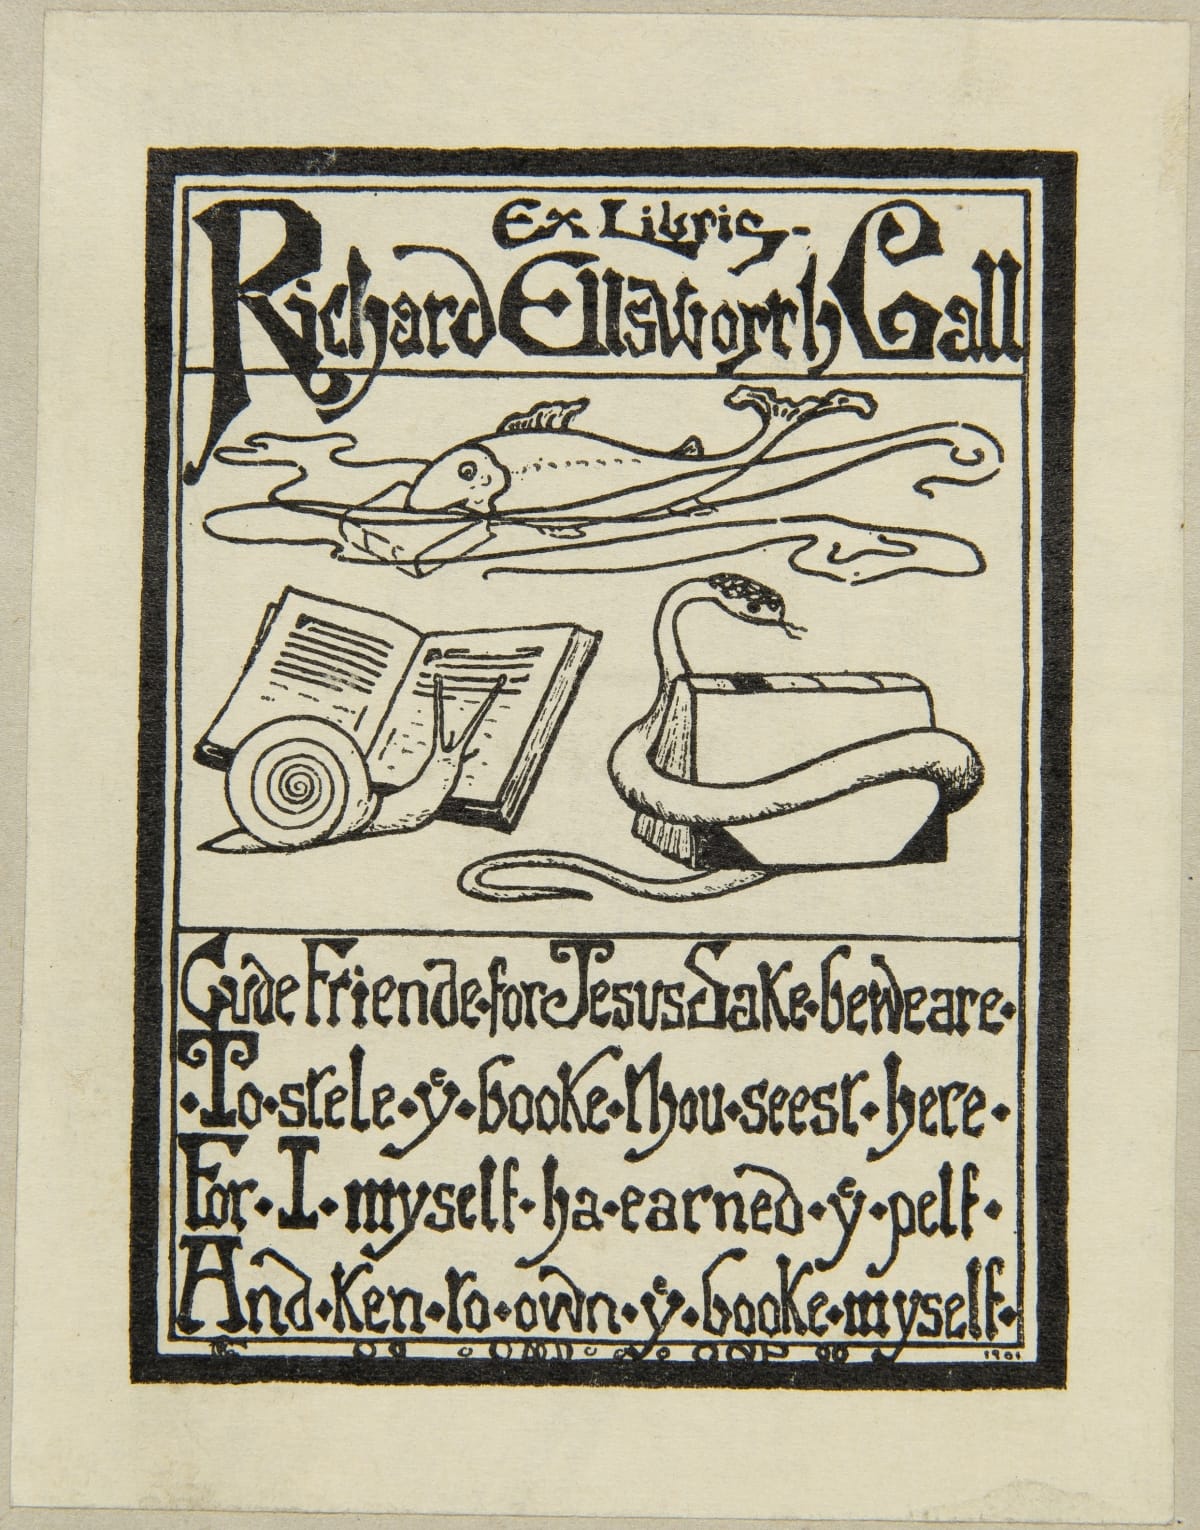 Ex Libris-
Richard Ellsworth Gall
Gude Friende·for Jesus Sake·beweare·
·To·stele·yᵉ·booke·thou·seest·here·
For·I·myself·ha·earned·yᵉ·pelf·
And·ken·to·own·yᵉ·booke·myself·
1901